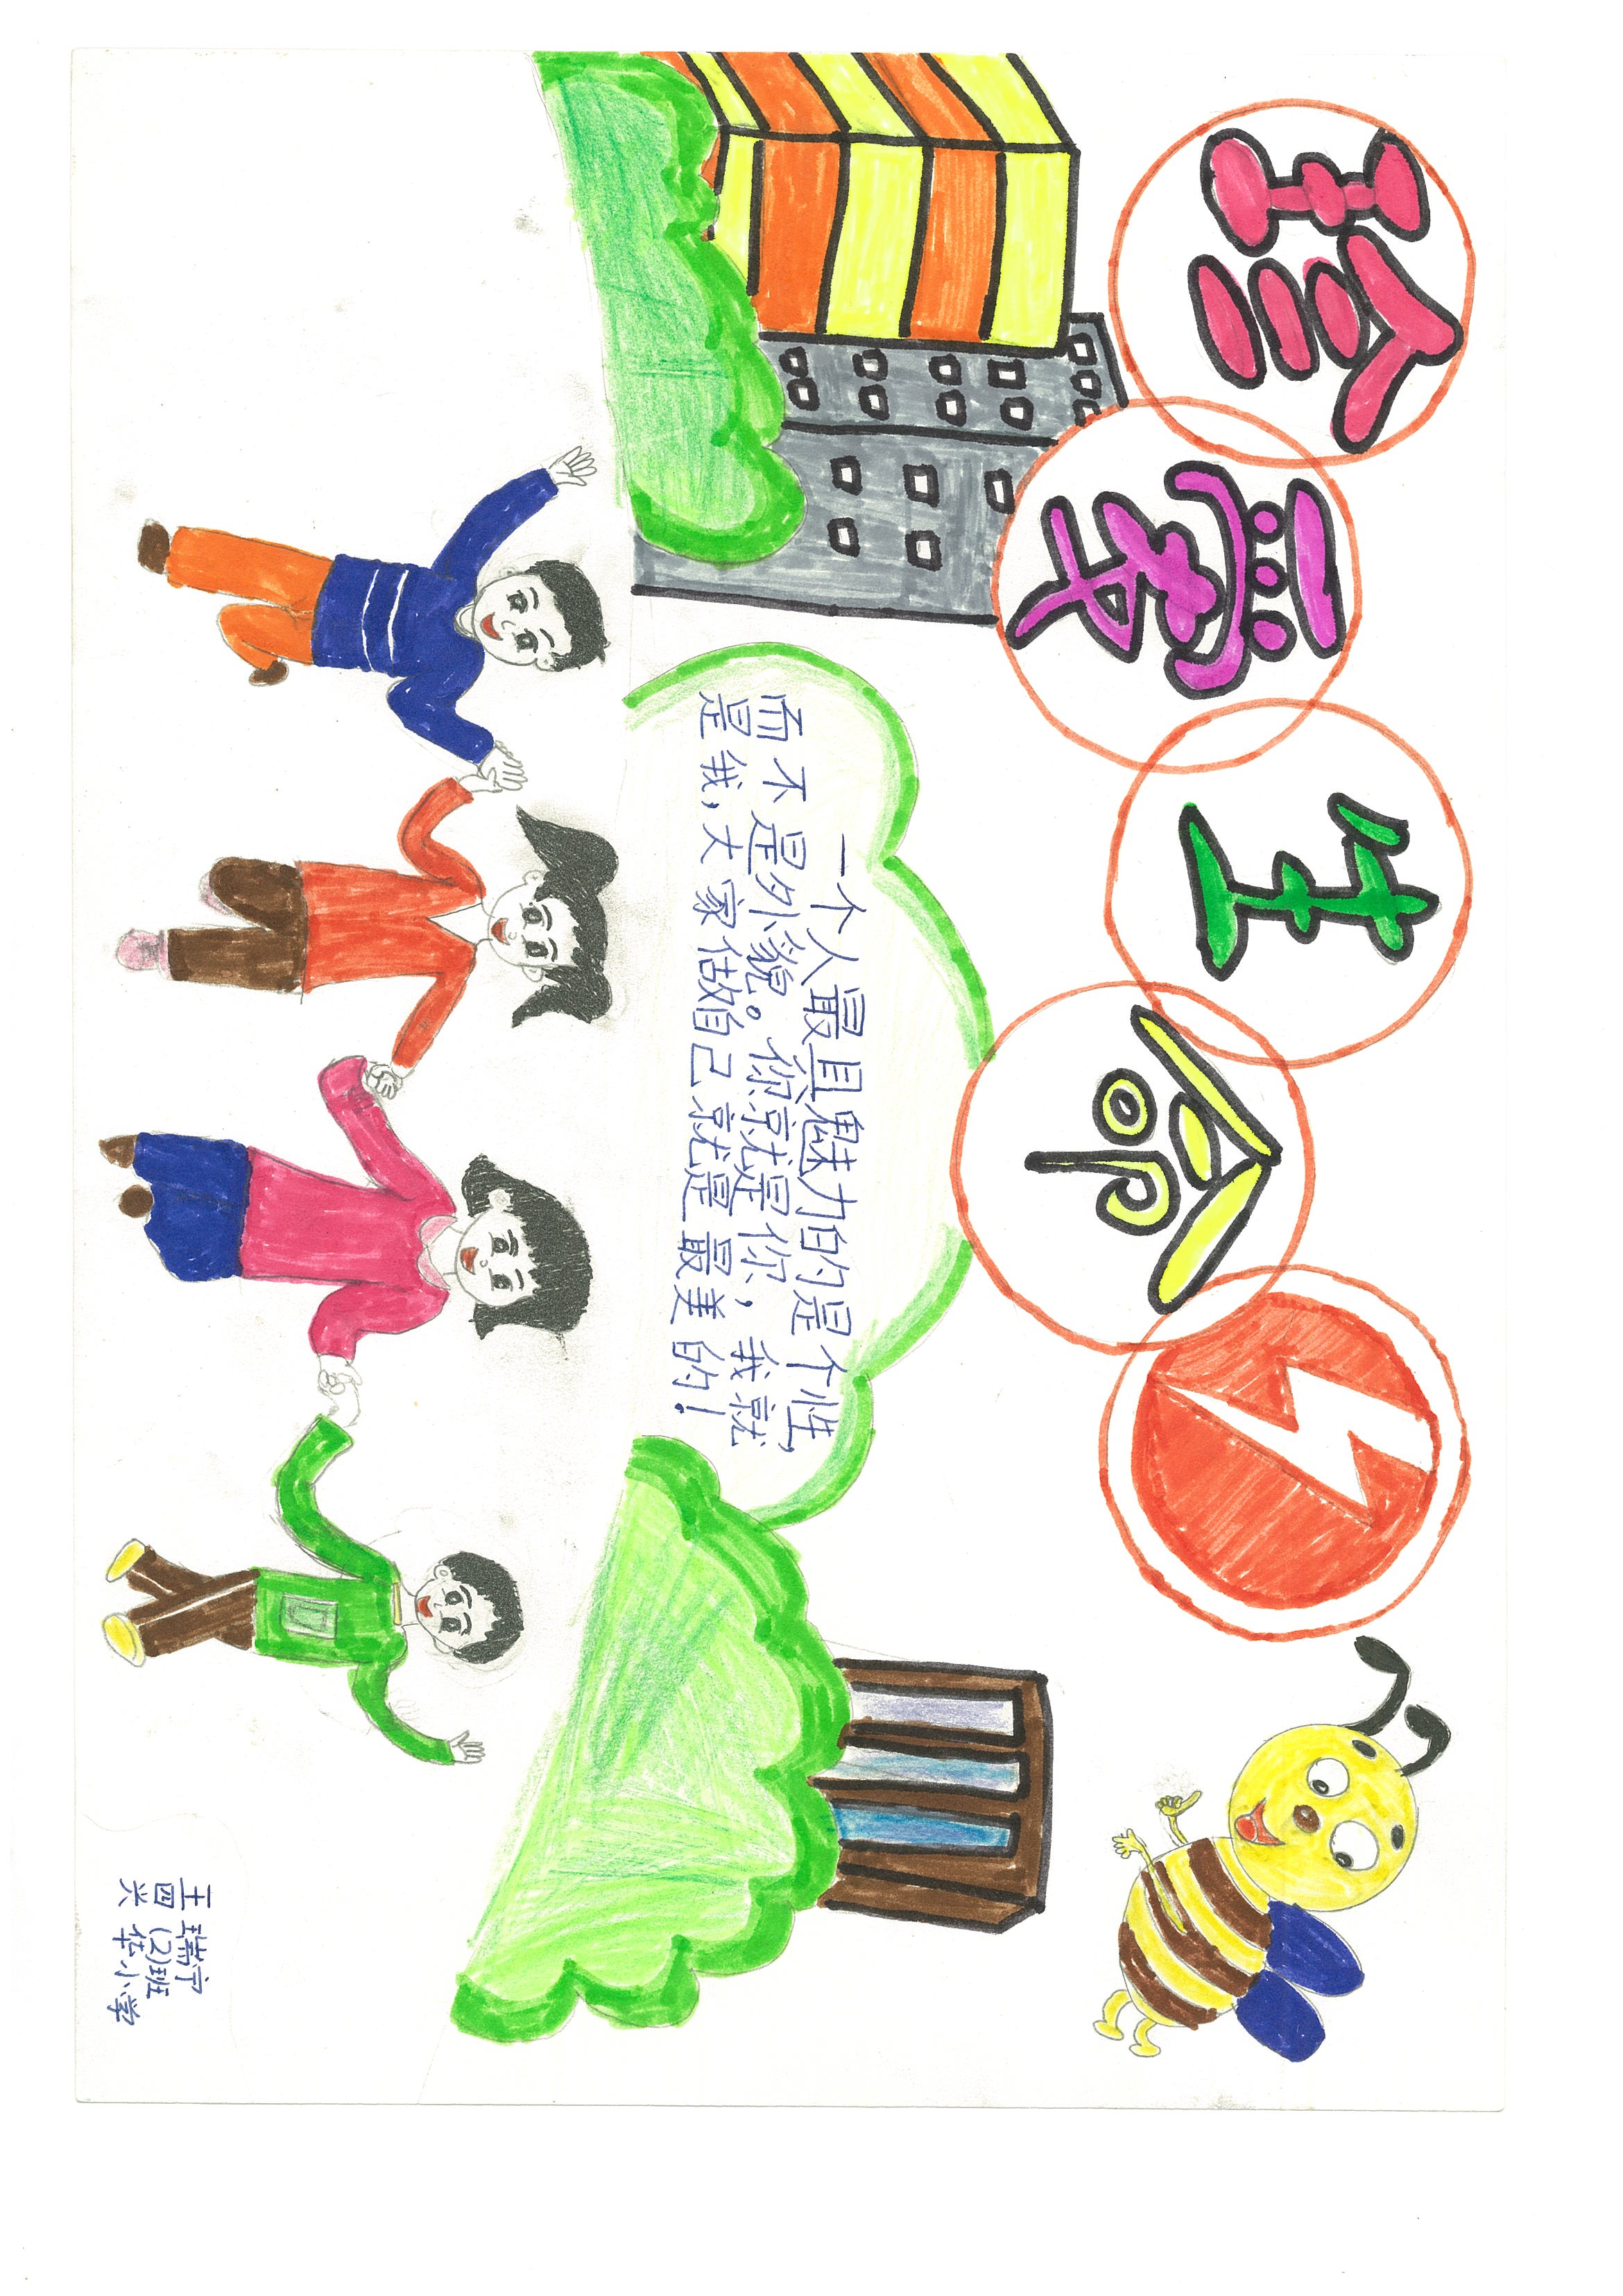 珍爱生命
一个人最具魅力的是个性,
而不是外貌。你就是你,我就
是我,大家做自己就是最美的!
王瑞宁
四(2)班
兴华小学